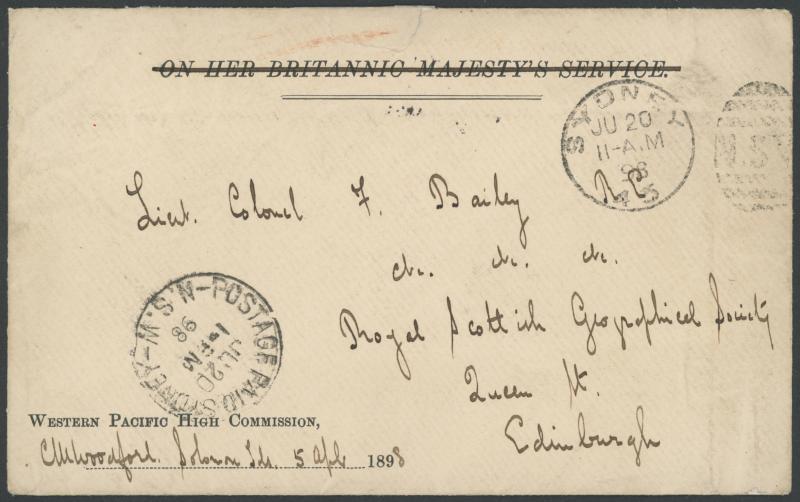 ON HER BRITANNIC MAJESTY'S SERVICE.
SYDNEY
JU 20
11-A.M
98
43
N.S.W
Lieut. Colonel F. Bailey R.E.
&c. &c. &c.
Royal Scottish Geographical Society
Queen St.
Edinburgh
POSTAGE PAID SYDNEY-N.S.W
JU 20
98
WESTERN PACIFIC HIGH COMMISSION,
CMWoodford. Solomon Ids. 5 Apl 1898